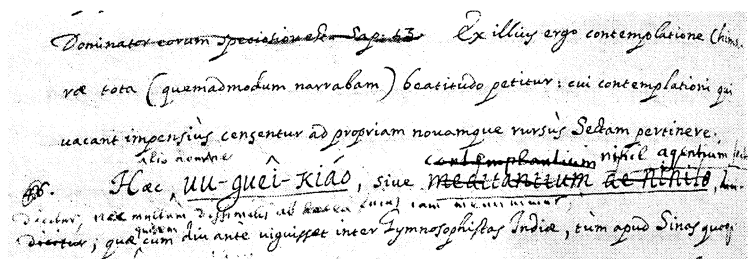 Dominator eorum speciosior est. Sap. 13. Ex illius ergo contemplatione Chimæ-
ræ tota (quemadmodum narrabam) beatitudo petitur: cui contemplationi qui
vacant impensiùs censentur ad propriam novamque rursùs Sectam pertinere.
alio nomine contemplantium nihil agentium
Hæc, uu-guêi-kiáo, sive meditantium de nihilo,
dicitur, nec multum dissimilis ab ea cuius iam meminimus
dicitur; quæ cum diu ante viguisset inter Gymnosophistas Indiæ, tùm apud Sinas
quidem